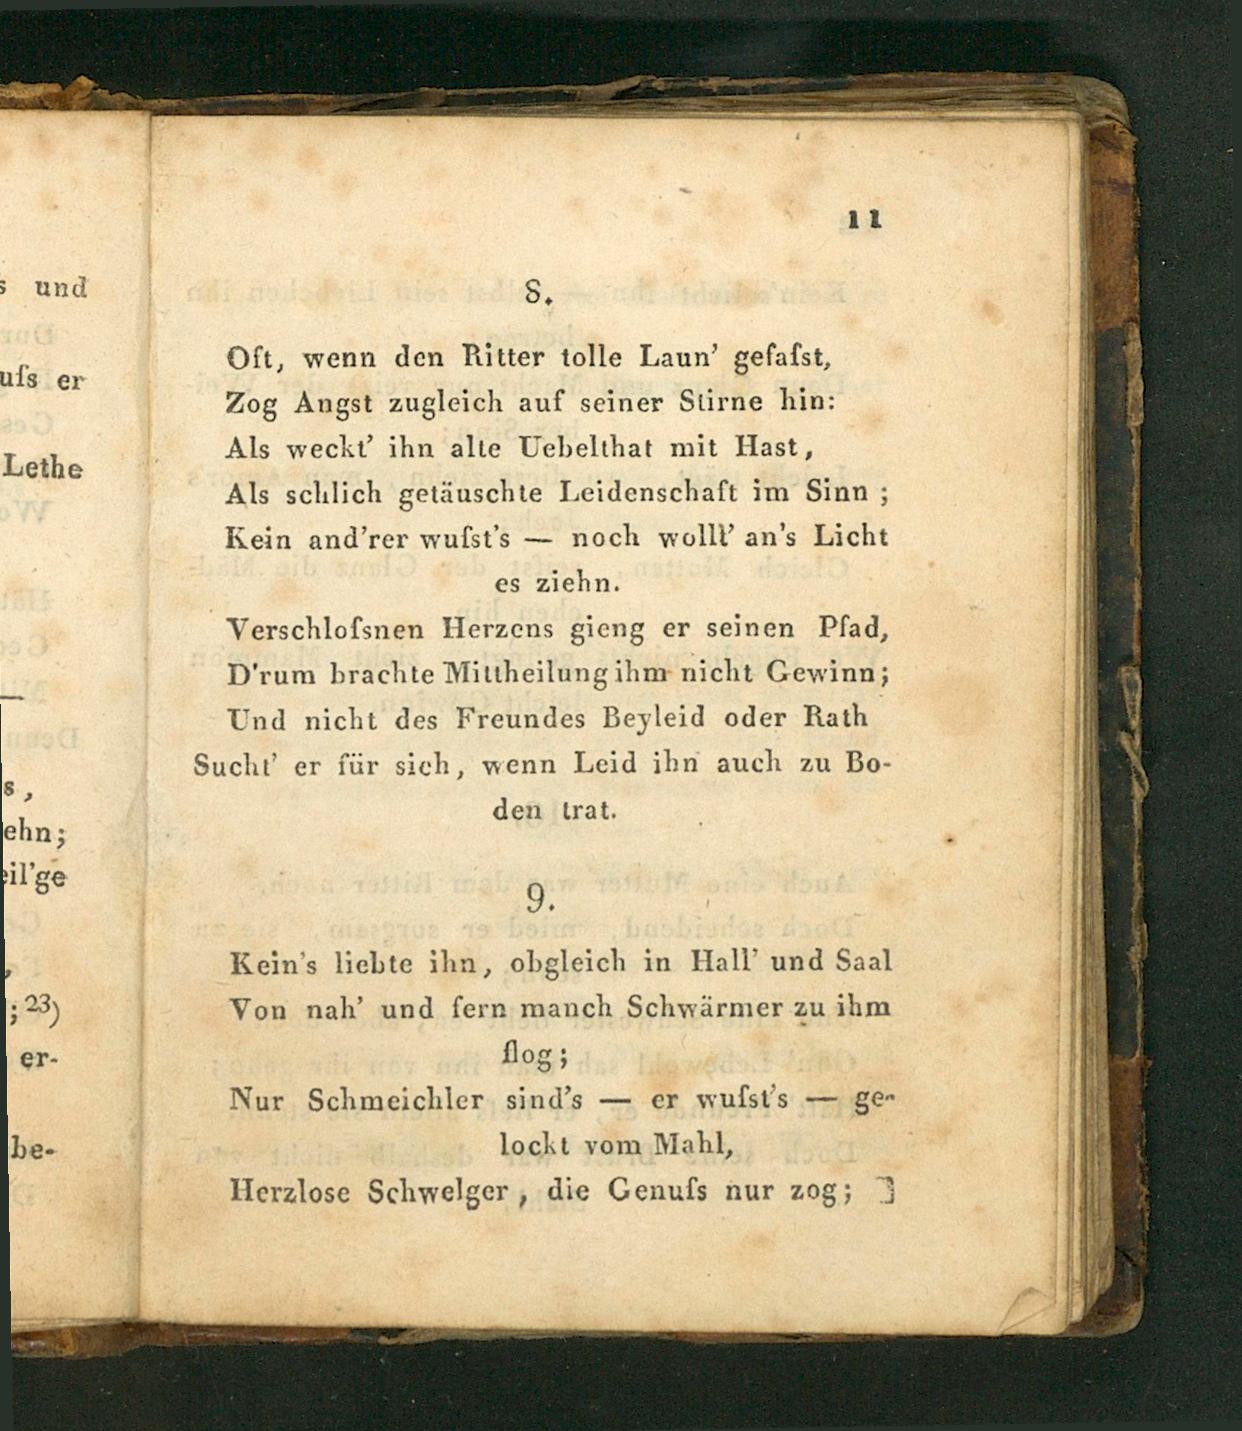 s und
ufs er
Lethe
s,
ehn;
eil'ge
,
; 23)
er-
be-
11
8.
Oft, wenn den Ritter tolle Laun' gefaſst,
Zog Angst zugleich auf seiner Stirne hin:
Als weckt' ihn alte Uebelthat mit Hast,
Als schlich getäuschte Leidenschaft im Sinn ;
Kein and'rer wuſst's — noch wollt' an's Licht
es ziehn.
Verschloſsnen Herzens gieng er seinen Pfad,
D'rum brachte Mittheilung ihm nicht Gewinn;
Und nicht des Freundes Beyleid oder Rath
Sucht' er für sich, wenn Leid ihn auch zu Bo-
den trat.
9.
Kein's liebte ihn, obgleich in Hall' und Saal
Von nah' und fern manch Schwärmer zu ihm
flog;
Nur Schmeichler sind's — er wuſst's — ge-
lockt vom Mahl,
Herzlose Schwelger, die Genuſs nur zog; ]